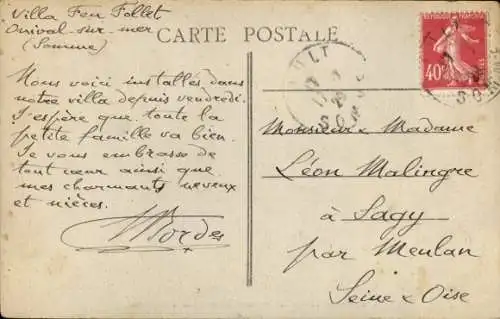 Villa Feu Follet
Onival-sur-mer
(Somme)
CARTE POSTALE
Nous voici installés dans
notre villa depuis vendredi.
J'espère que toute la
petite famille va bien.
Je vous embrasse de
tout cœur ainsi que
mes charmants neveux
et nièces.
MBordes
REPUBLIQUE FRANÇAISE
40c
Monsieur & Madame
Léon Malingre
à Sagy
par Meulan
Seine & Oise